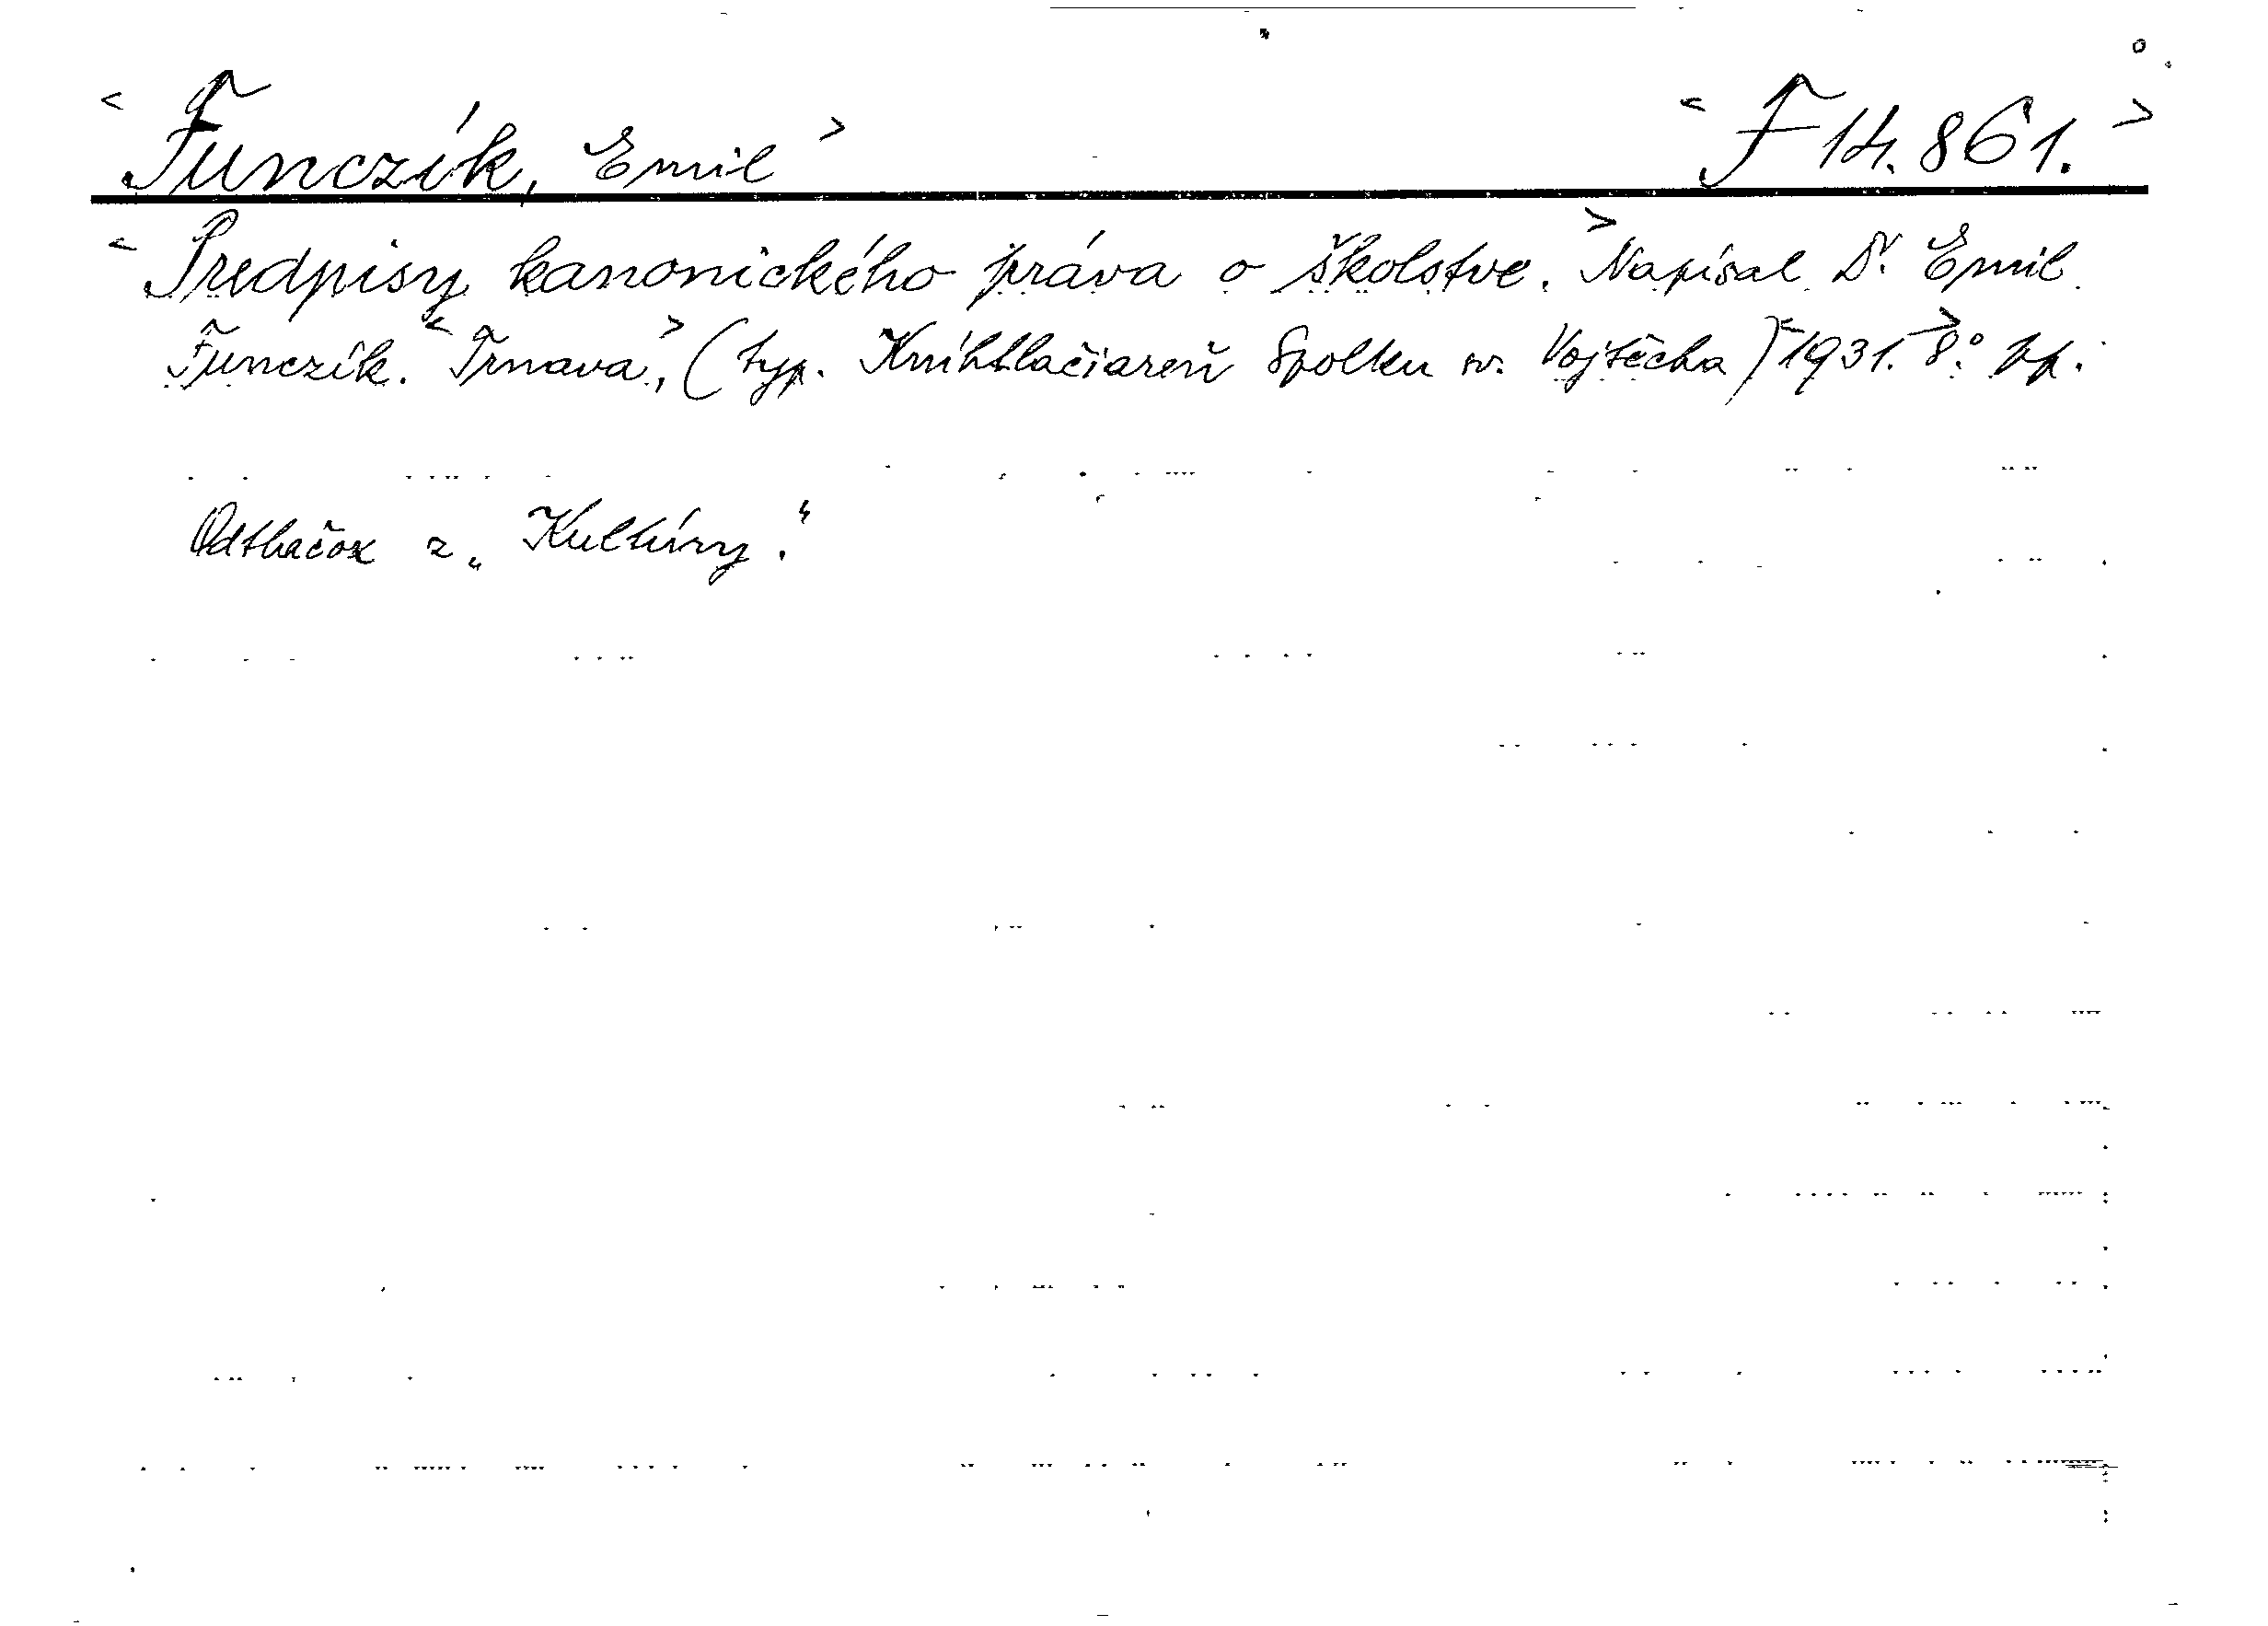 < Funczík, Emil > < F 14.861. >
< Predpisy kanonického práva o školstve. > Napísal Dr. Emil
Funczík. < Trnava, > (typ. Kníhtlačiareň Spolku sv. Vojtěcha) < 1931. > 8.°
Odtlačok z „Kultúry."